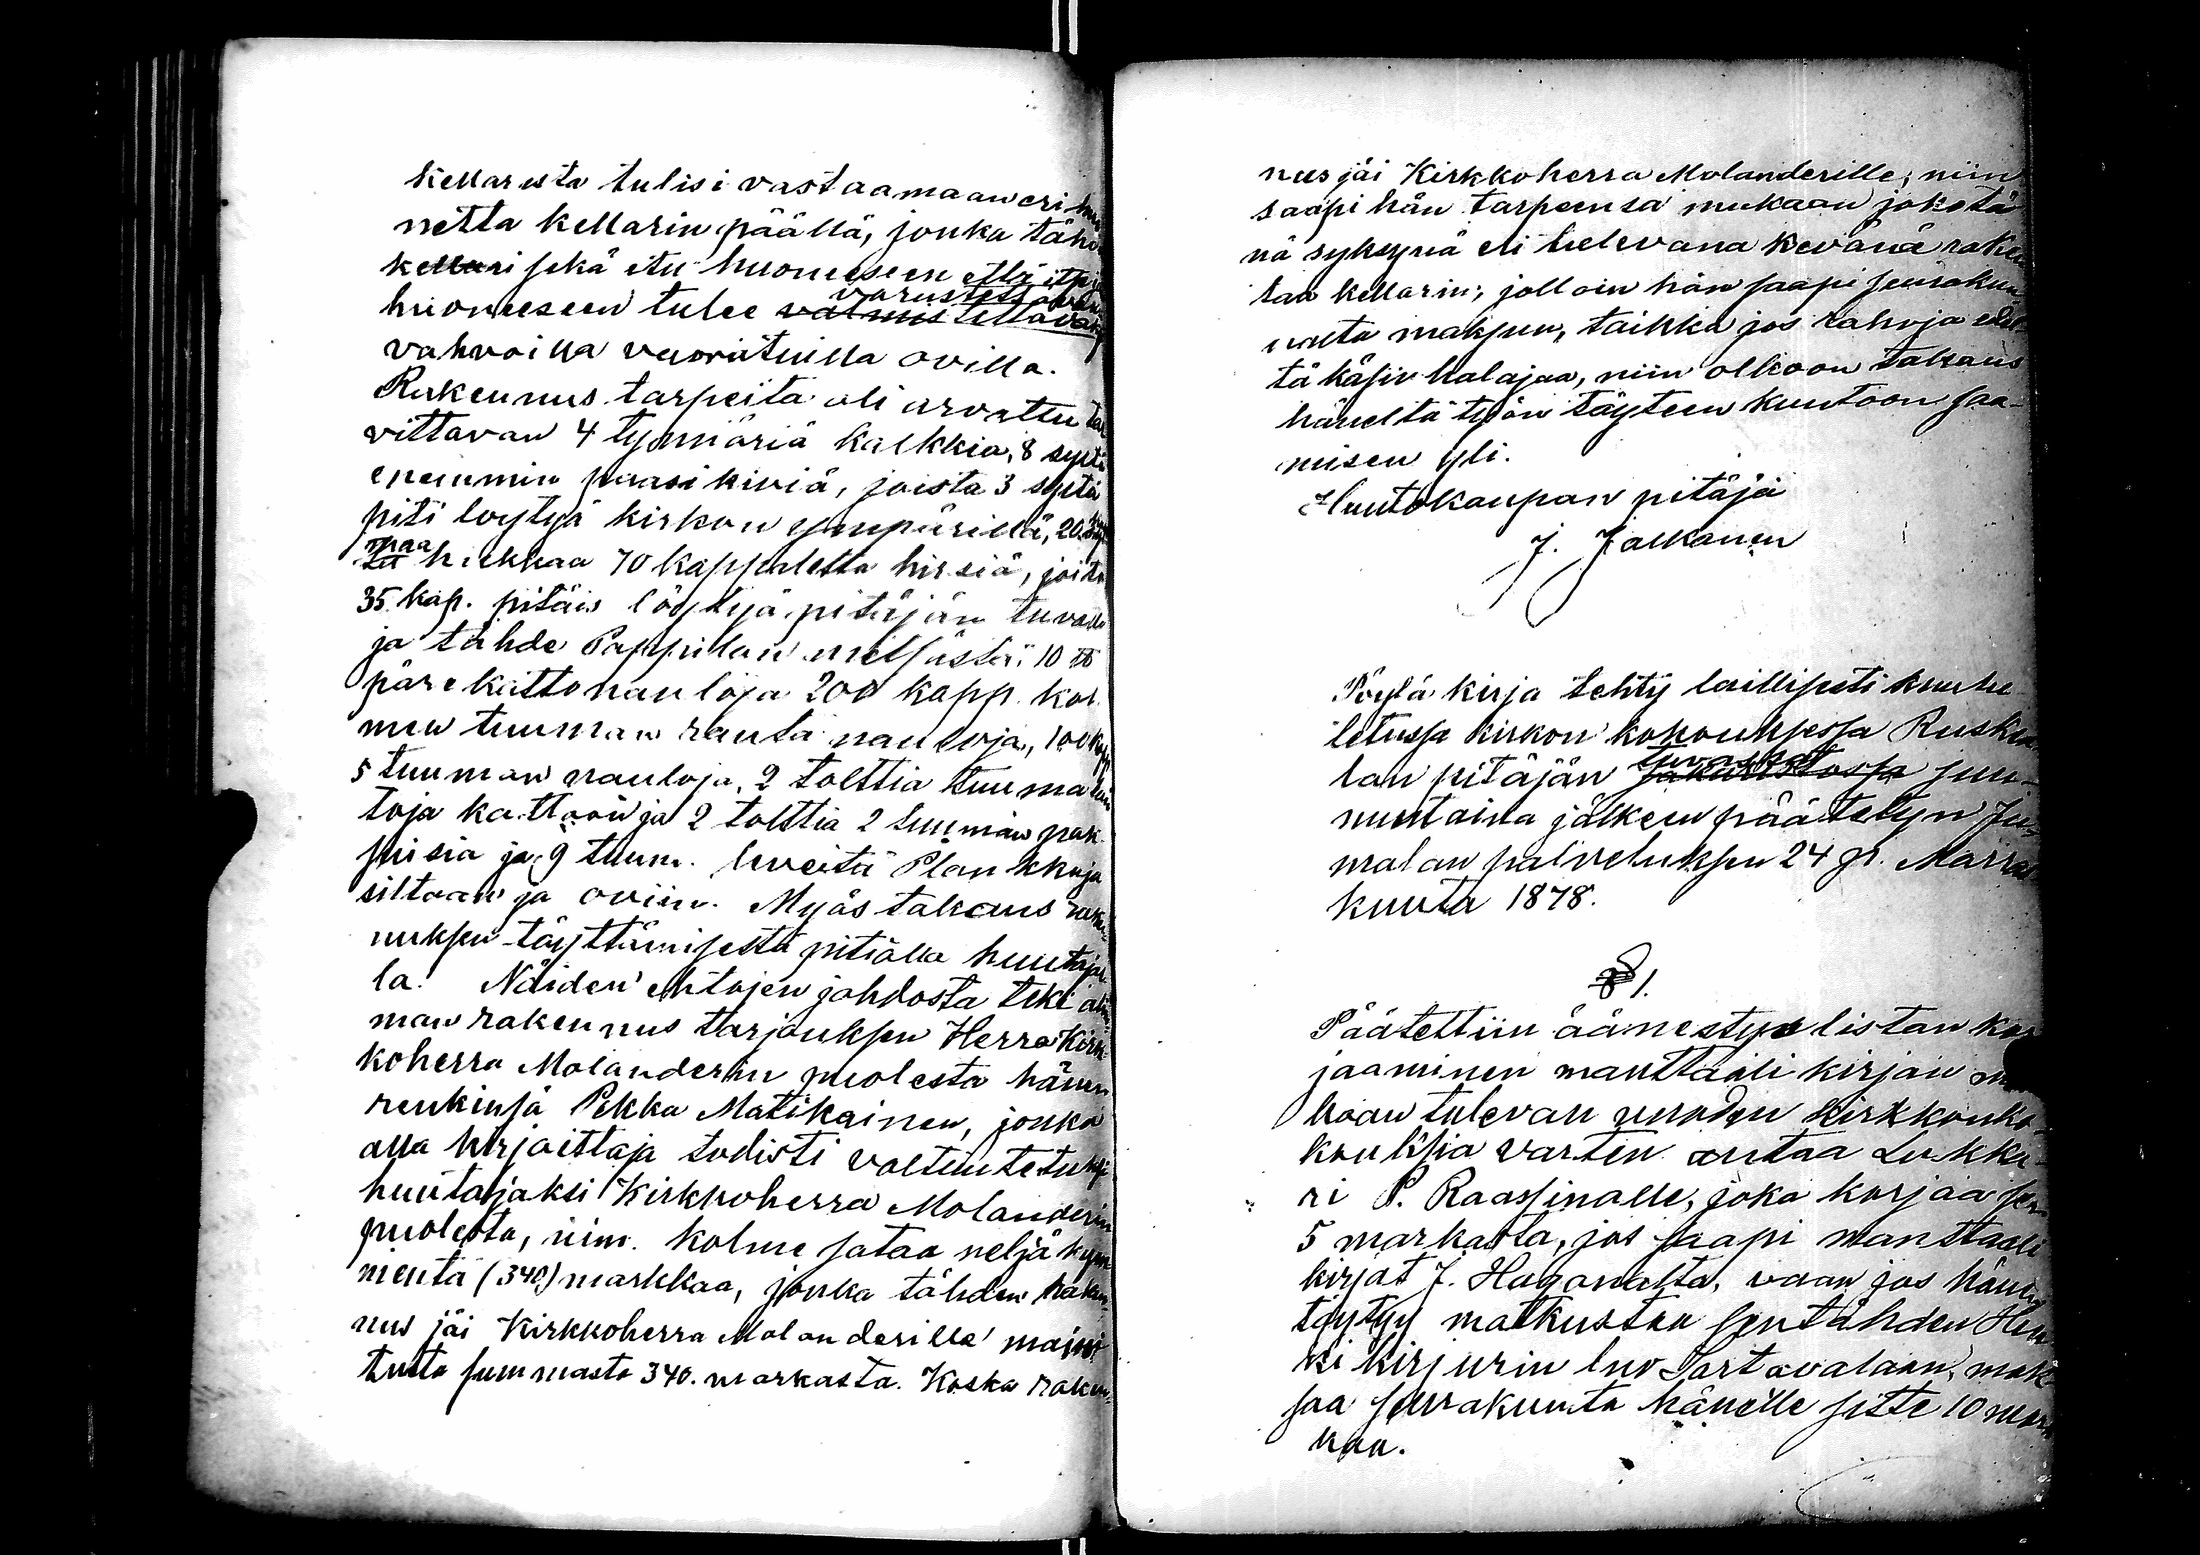 kellarista tulisi vastaamaan eri huo
netta kellarin päällä, jonka täh
kellari sekä etu huoneeseen että itse
huoneeseen tulee valmistettavan varustettavan
vahvoilla vuoratuilla ovilla.
Rakennus tarpeita oli arvattu tar
vittavan 4 tynnäriä kalkkia, 8 syltä
enemmin paasi kiviä, joista 3 syltä
piti loytyä kirkon ympärillä, 20
maa hiekkaa 70 kappaletta hirsiä, joita
35 kap. pitäis löytyä pitäjän tuvalla
ja tähde Pappilan metsästä: 10 ℔
päre kattonauloja 200 kapp. kol
men tuuman rauta nauloja, 100 kap
5 tuuman nauloja, 2 tolttia tuuma lau
toja kattoon ja 2 tolttia 2 tuuman pak
suisia ja 9 tuum. leveitä Plankkuja
siltaan ja oviin. Myös takaus raken
nuksen täyttämisestä pitiolla huutajal
la. Näiden ehtojen johdosta teki alim
man rakennus tarjouksen Herra Kirk
koherra Molanderin puolesta hänen
renkinsä Pekka Matikainen, jonka
alla kirjoittaja todisti valtuutetuksi
huutajaksi Kirkkoherra Molanderin
puolesta, nim. kolme sataa neljäkym
mentä (340) markkaa, jonka tähden raken
nus jäi Kirkkoherra Molanderille maini
tusta summasta 340. markasta. Koska raken
nus jäi Kirkkoherra Molanderille, niin
saapi hän tarpeensa mukaan joko tä
nä syksynä eli tulevana kevänä raken
taa kellarin; jolloin hän saapi seurakun
nalta maksun, taikka jos rahoja edel
tä käsin halajaa, niin olkoon takaus
häneltä työn täyteen kuntoon saa-
misen yli.
Huutokaupan pitäjä
J. Jalkanen
Pöytä kirja tehty laillisesti kuulu
tetussa kirkon kokouksessa Ruskea
lan pitäjän sakaristossa tuvassa sun-
nuntaina jälkeen päätetyn Ju
malan palveluksen 24 p. Marras
kuuta 1878.
§ 1.
Päätettiin äänestys listan kor
jaaminen manttaali kirjan mu
kaan tulevan vuoden kirkkonko
kouksia varten antaa Lukka-
ri P. Raassinalle, joka korjaa sen
5 markasta, jos saapi manttaali
kirjat J. Haganalta, vaan jos hänen
täytyy matkustaa sentähden Hen
ki kirjurin luo Sortavalaan, mak
saa seurakunta hänelle sitte 10 mark
kaa.